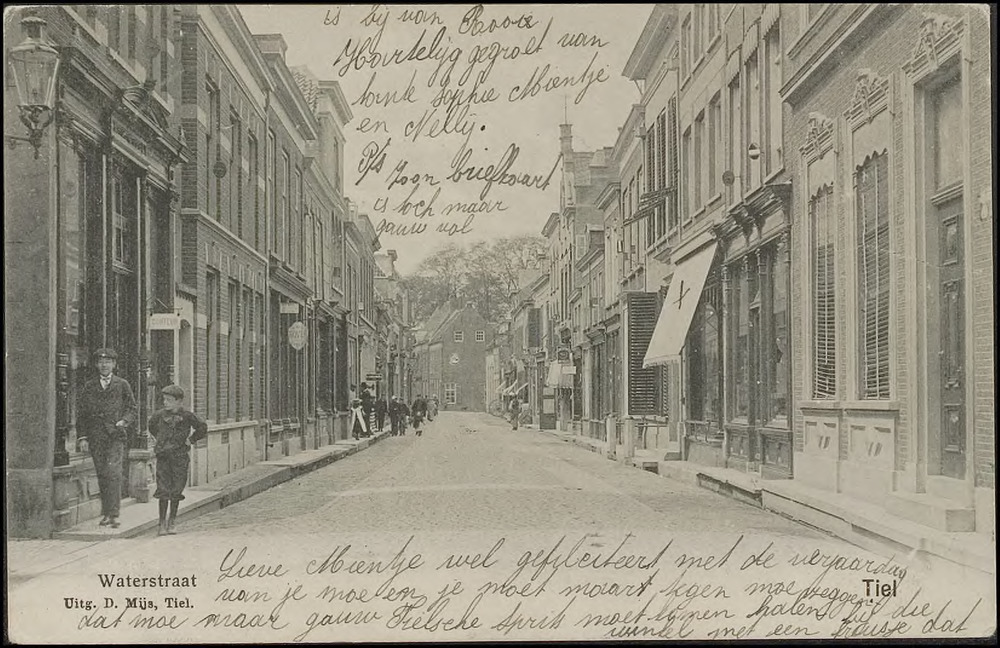 is bij van Roose
Hartelijg gegroet van
tante Sophie Mientje
en Nellij.
P/s zoon briefkaart
is toch maar
gauw vol
X
Waterstraat
Uitg. D. Mijs, Tiel.
Tiel
Lieve Mientje wel gefiliciteert met de verjaardag
van je moe en je moet maart tegen moe zeggen
dat moe maar gauw Tielsche sprits moet komen halen uit die
winkel met een kruisje dat